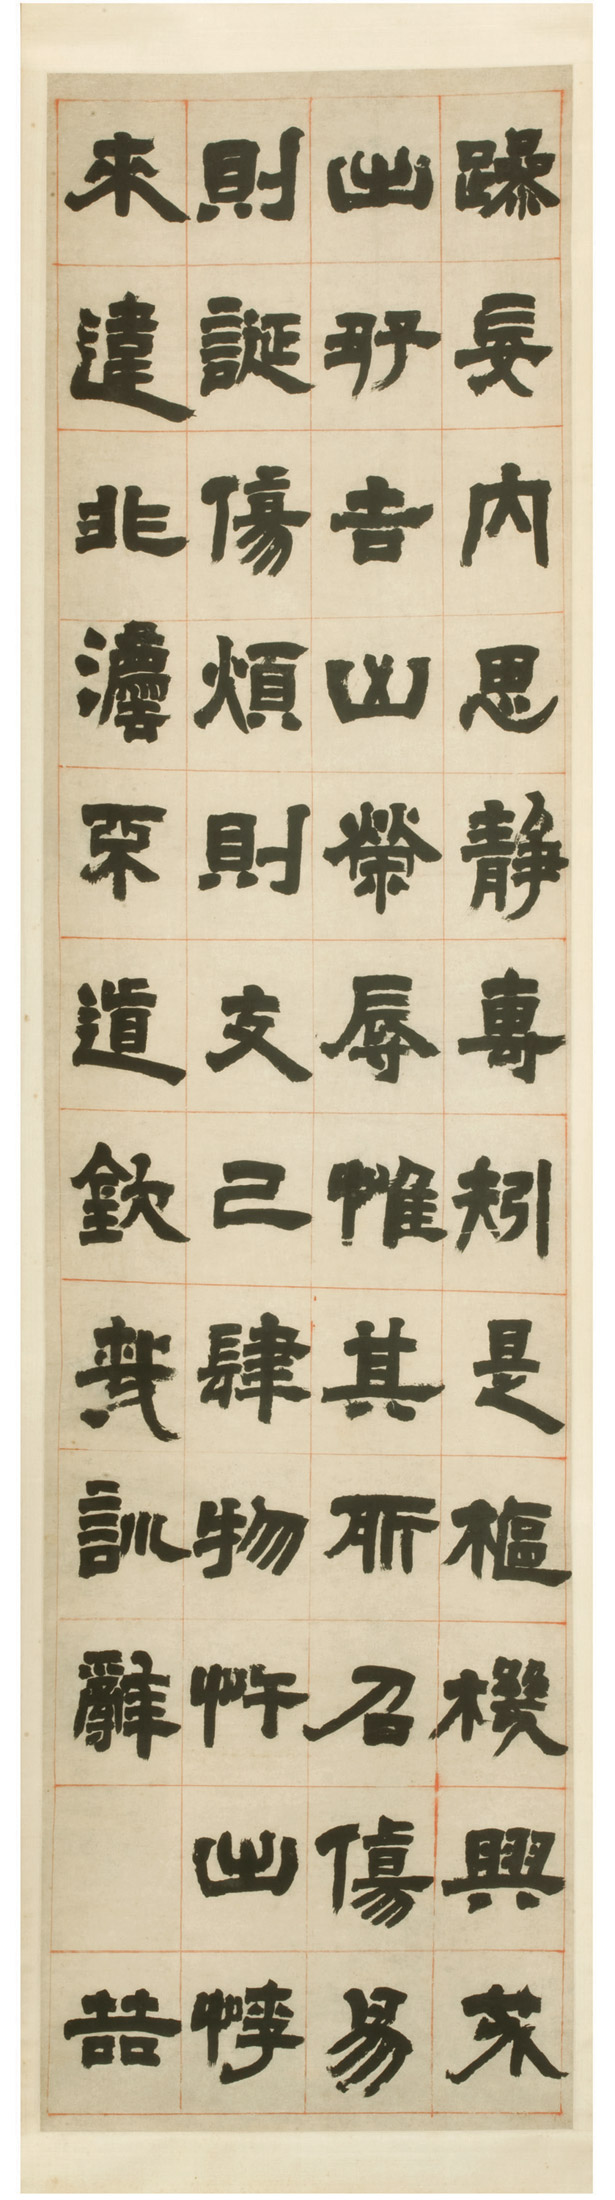 躁妄內思靜專矧是樞機興戎
出好吉凶榮辱惟其所召傷易
則誕傷煩則支己肆物忤出悖
來違非灋不道欽哉訓辭 喆